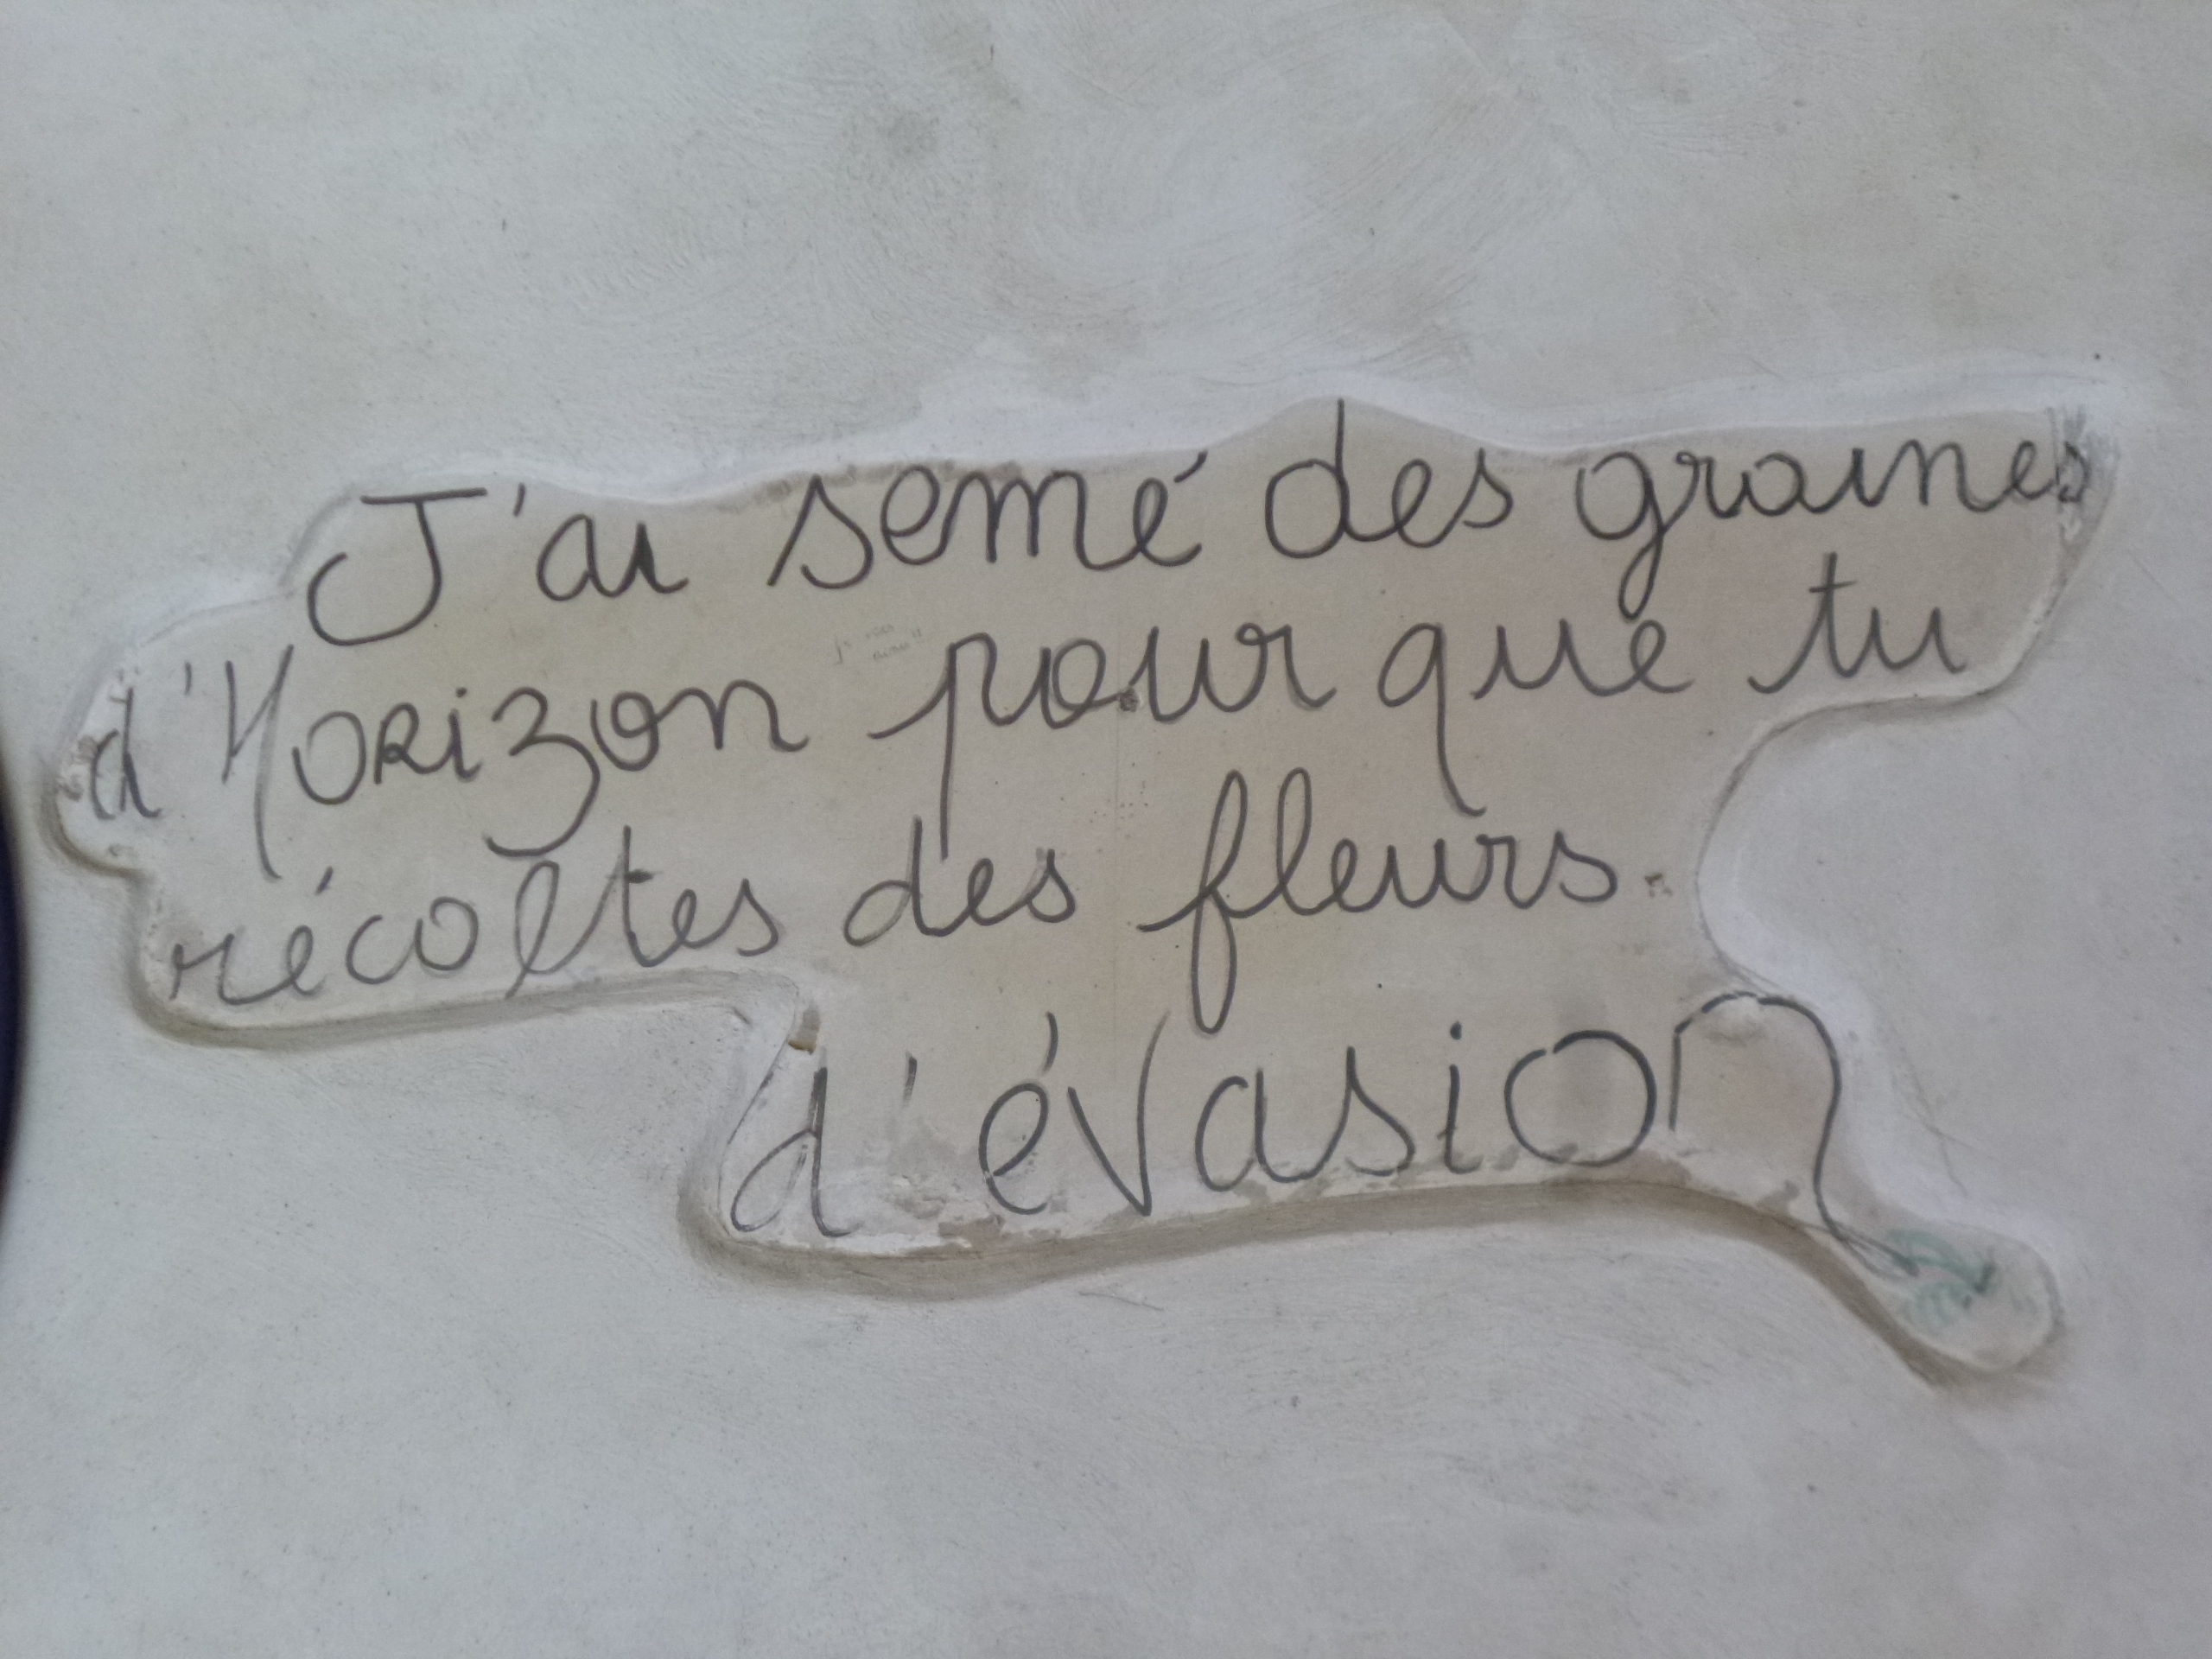 J'ai semé des graines
d'Horizon pour que tu
récoltes des fleurs.
d'évasion